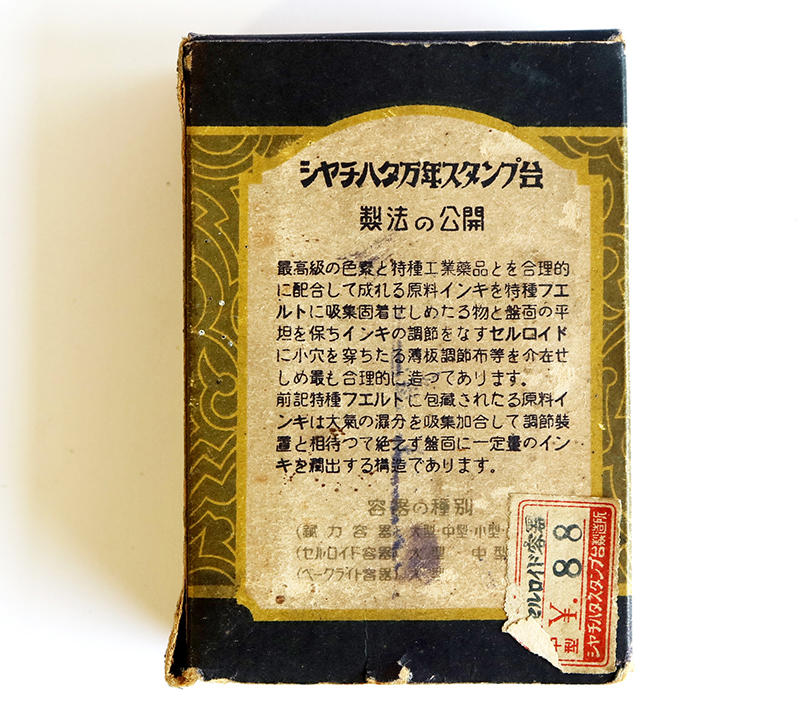 シヤチハタ万年スタンプ台
製法の公開
最高級の色素と特種工業藥品とを合理的
に配合して成れる原料インキを特種フエ
ルトに吸集固着せしめたる物と盤面の平
坦を保ちインキの調節をなすセルロイド
に小穴を穿ちたる薄板調節布等を介在せ
しめ最も合理的に造つてあります。
前記特種フエルトに包藏されたる原料イ
ンキは大氣の濕分を吸集加合して調節裝
置と相待つて絶えず盤面に一定量のイン
キを潤出する構造であります。
容器の種別
(ブリキ容器) 大型・中型・小型・
(セルロイド容器) 大型 中型
(ベークライト容器) 大型
セルロイド容器
中型 ¥.88
シヤチハタスタンプ台製造所